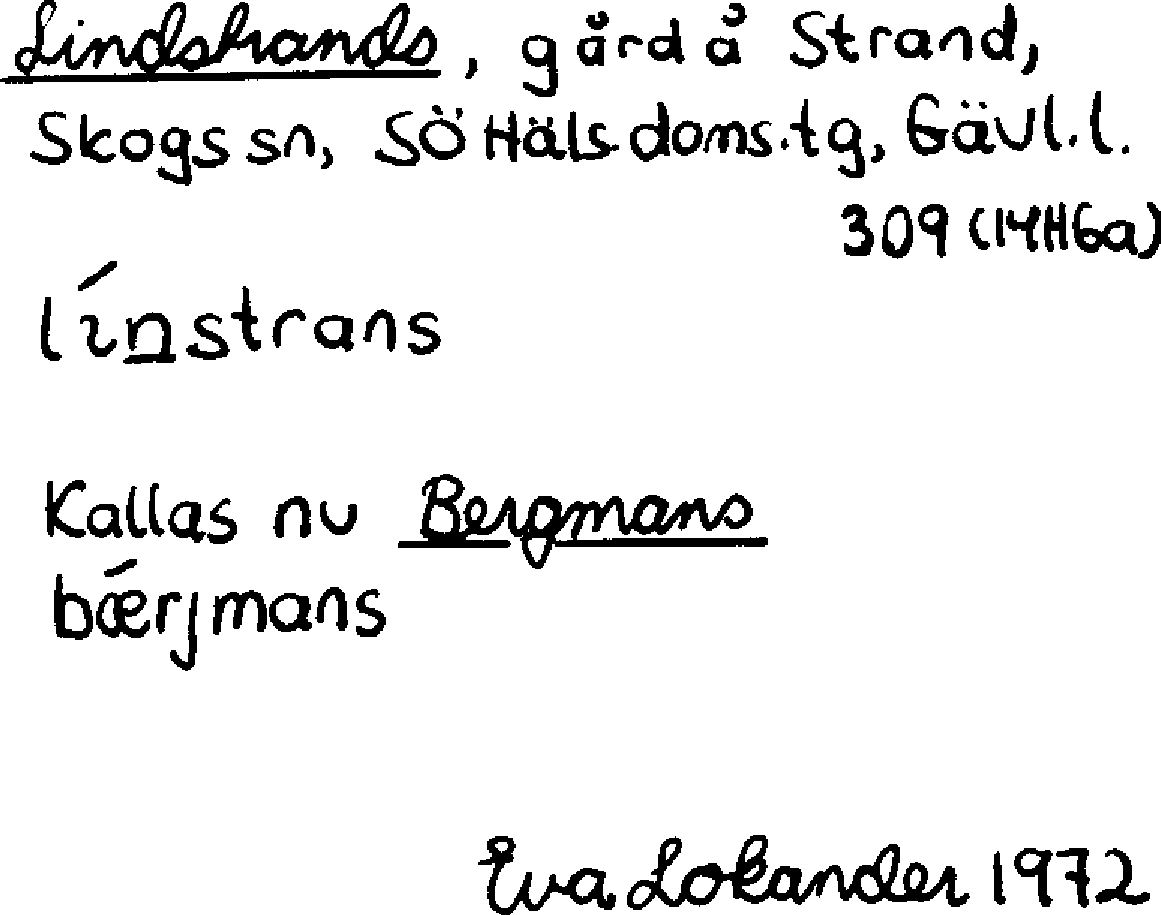 Lindstrands, gård å Strand,
Skogs sn, Sö Häls. doms. tg, Gävl. l.
309 (14H6a)
línstrans
Kallas nu Bergmans
bǽrjmans
Eva Lokander 1972